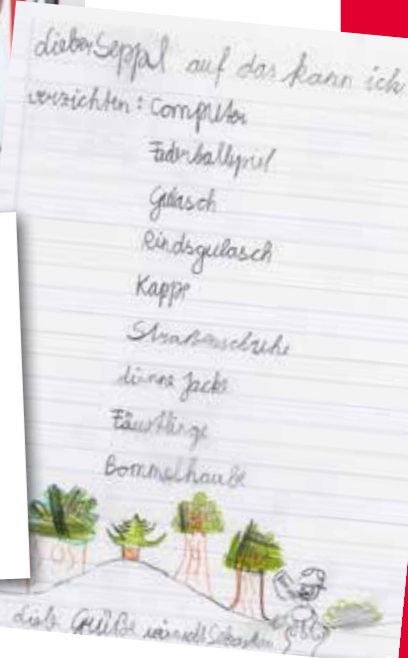 lieber Seppal auf das kann ich
verzichten: Computer
Federballspiel
Gulasch
Rindsgulasch
Kappe
Straßenschuhe
dünne Jacke
Fäustlinge
Bommelhaube
liebe Grüße wünscht Sebastian